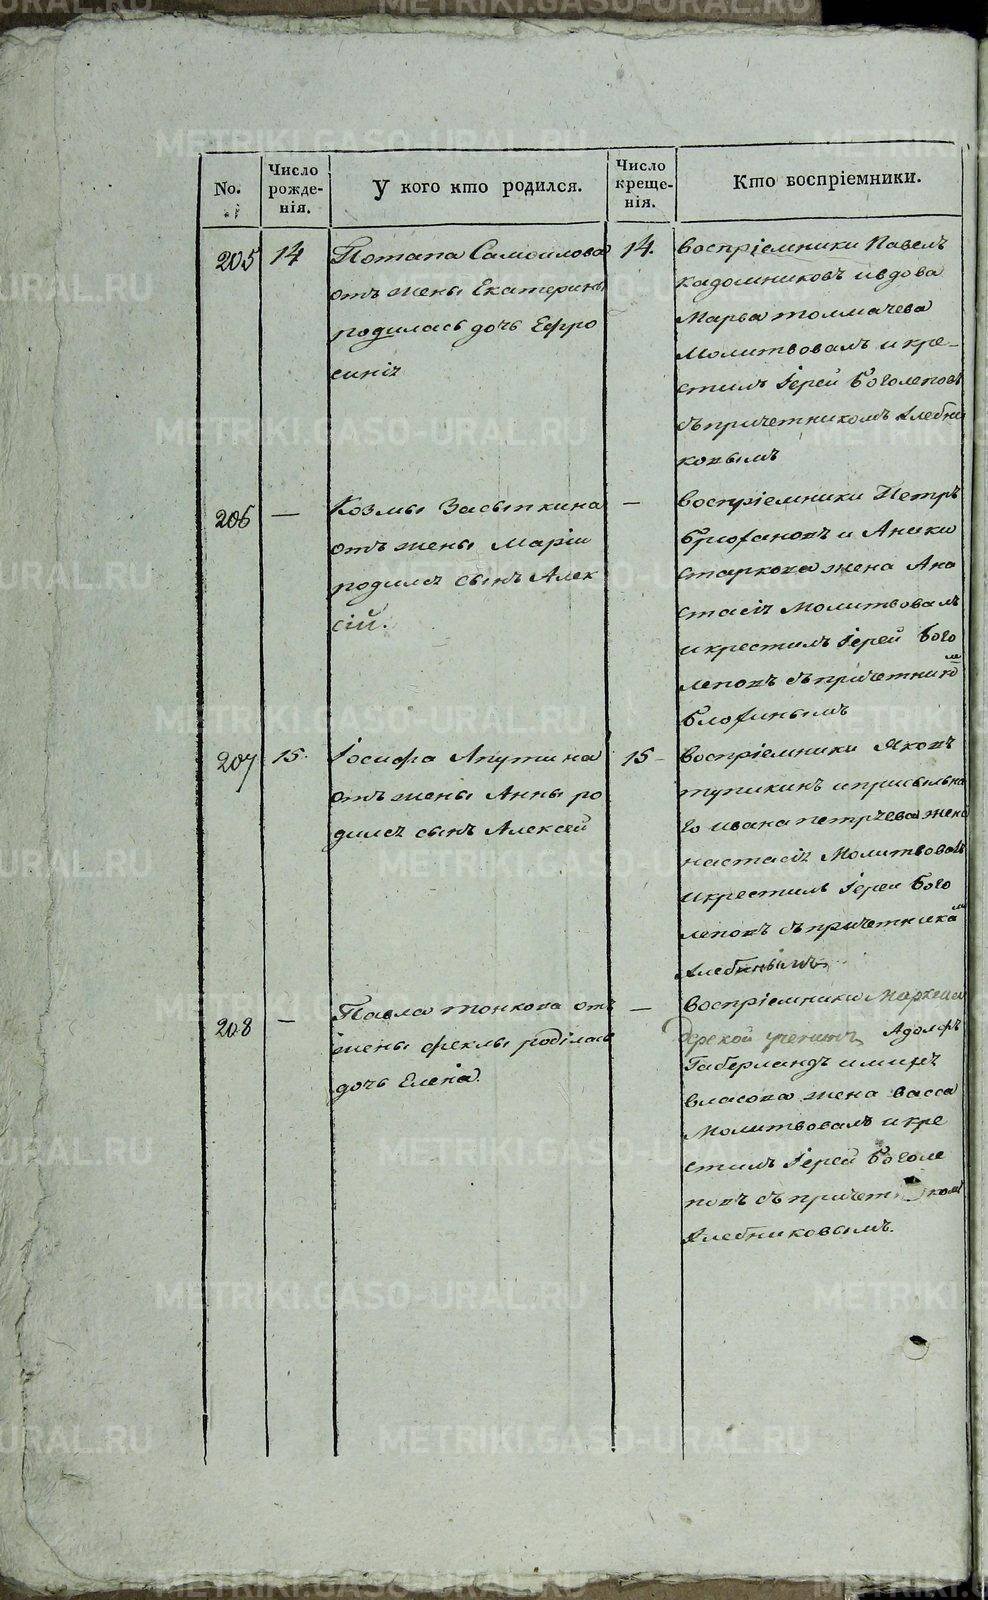 No.
Число рожде-нія.
У кого кто родился.
Число креще-нія.
Кто воспріемники.
205
14
Потапа Самоилова
отъ жены Екатерины
родилась дочь Ефро
синіѧ
14.
воспріемники Павелъ
кадомниковъ ивдова
Марѳа толмачева
Молитвовалъ и кре-
стилъ Іерей Боголеповъ
съпричетникомъ Хлебни
ковымъ
206
—
Козмы Засыпкина
отъ жены Маріи
родилсѧ сынъ Алек
сій.
—
воспріемники Петръ
и Аники
старкова жена Ана
стасіѧ Молитвовалъ
икрестилъ Іерей Бого
леповъ съпричетником
207
15.
Іосифа Лпутина
отъ жены Анны ро
дилсѧ сынъ Алексей
15
воспріемники Яковъ
тупикинъ
ивана жена
настасіѧ Молитвовалъ
икрестилъ Іерей Бого
леповъ съпричетникам
208
—
Павла тонкова отъ
жены феклы родилась
дочь Елена.
—
воспріемники
ученикъ Адольфъ
Габерландъ
власова жена васса
Молитвовалъ и кре
стилъ Іерей Боголе
повъ съ причетникомъ
Хлебниковымъ.
METRIKI.GASO-URAL.RU